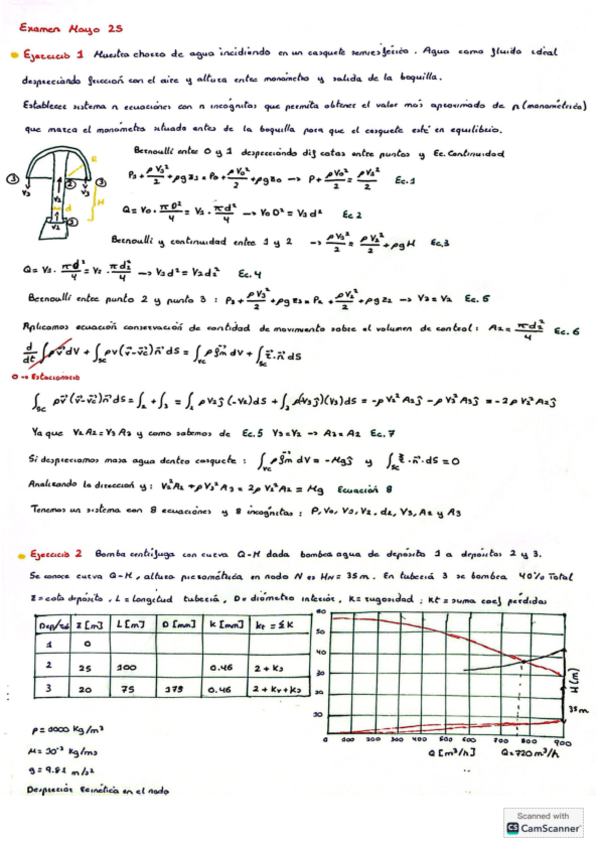 Examen Mayo 25
Ejercicio 1 Muestra chorro de agua incidiendo en un casquete semiesférico. Agua como fluido ideal
despreciando fricción con el aire y altura entes manómetro y salida de la boquilla.
Establecer sistema n ecuaciones con n incógnitas que permita obtener el valor más aproximado de p (manométrica)
que marca el manómetro situado antes de la boquilla para que el casquete esté en equilibrio.
Bernoulli entre 0 y 1 despreciando dif cotas entre puntos y Ec. Continuidad
P1 + ρV1²/2 + ρgz1 = P0 + ρV0²/2 + ρgz0 → P + ρV0²/2 = ρV1²/2 Ec. 1
Q = V0 · πD²/4 = V1 · πd²/4 → V0D² = V1d² Ec 2
Bernoulli y continuidad entre 1 y 2 → ρV1²/2 = ρV2²/2 + ρgH Ec. 3
Q = V1 · πd²/4 = V2 · πd2²/4 → V1d² = V2d2² Ec. 4
Bernoulli entre punto 2 y punto 3 : P3 + ρV3²/2 + ρgz3 = P2 + ρV2²/2 + ρgz2 → V3 = V2 Ec. 5
Aplicamos ecuación conservación de cantidad de movimiento sobre el volumen de control : A2 = πd2²/4 Ec. 6
d/dt ∫ρv dV + ∫sc ρv(v-vc)n dS = ∫vc ρgm dV + ∫sc τ·n dS
0 → Estacionario
∫sc ρv(v-vc)n dS = ∫2 + ∫3 = ∫2 ρV2j(-V2)dS + ∫3 ρ(-V3j)(V3)dS = -ρV2²A2j - ρV3²A3j = -2ρV2²A2j
Ya que V2A2 = V3A3 y como sabemos de Ec. 5 V3 = V2 → A3 = A2 Ec. 7
Si despreciamos masa agua dentro casquete : ∫vc ρgm dV = -Mgj y ∫sc τ·n·dS = 0
Analizando la dirección y : V2²A2 + ρV3²A3 = 2ρV2²A2 = Mg Ecuación 8
Tenemos un sistema con 8 ecuaciones y 8 incógnitas : P, V0, V1, V2, d2, V3, A2 y A3
Ejercicio 2 Bomba centrífuga con curva Q-H dada bombea agua de depósito 1 a depósitos 2 y 3.
Se conoce curva Q-H, altura piezométrica en nodo N es HN = 35m. En tubería 3 se bombea 40% Total
Z = cota depósito, L = longitud tubería, D = diámetro interior, K = rugosidad ; Kt = suma coef pérdidas
Dep/tub Z [m] L [m] D [mm] K [mm] kt = ΣK
1 0
2 25 100 0.46 2 + K2
3 20 75 175 0.46 2 + Kv + K3
60
50
40
30
20
10
0 100 200 300 400 500 600 700 800 900
H (m)
35m
Q [m³/h] Q = 720 m³/h
ρ = 1000 Kg/m³
μ = 10⁻³ Kg/ms
g = 9.81 m/s²
Despreciar cinética en el nodo
Scanned with
CS CamScanner